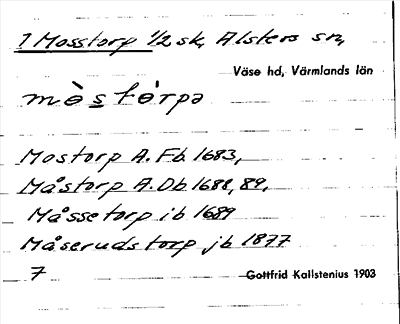 1 Mosstorp 1/2 sk, Alsters sn,
Väse hd, Värmlands län
mo̊stò̀rpə
Mostorp A.Fb. 1683,
Måstorp A.Db. 1688, 89,
Måssetorp ib 1689
Måserudstorp jb 1877
7
Gottfrid Kallstenius 1903